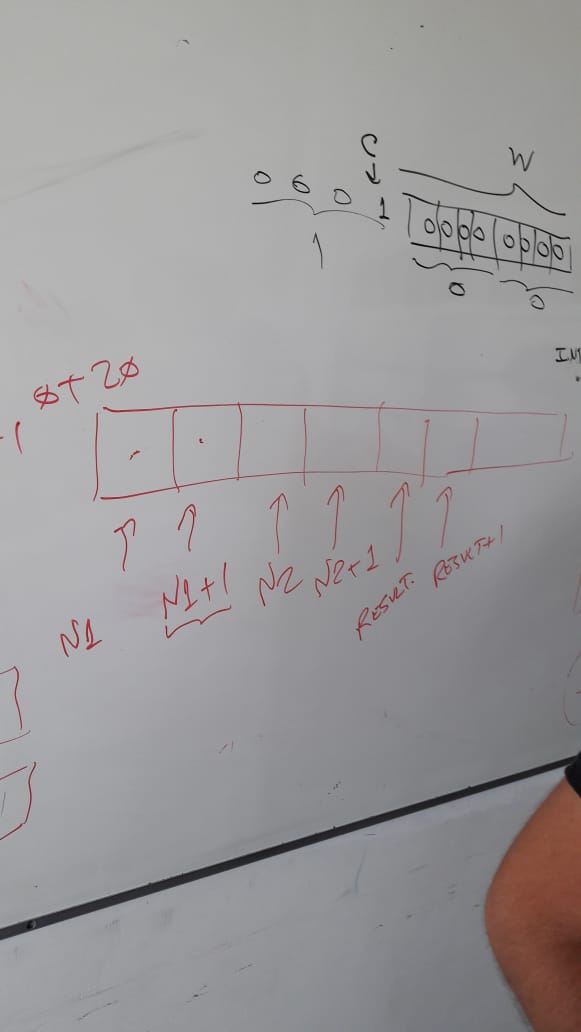 C
W
0 0 0 1 0 0 0 0 0 0 0 0
1 0 0
INI
0+20
-1
N1 N1+1 N2 N2+1 RESULT. RESULT+1